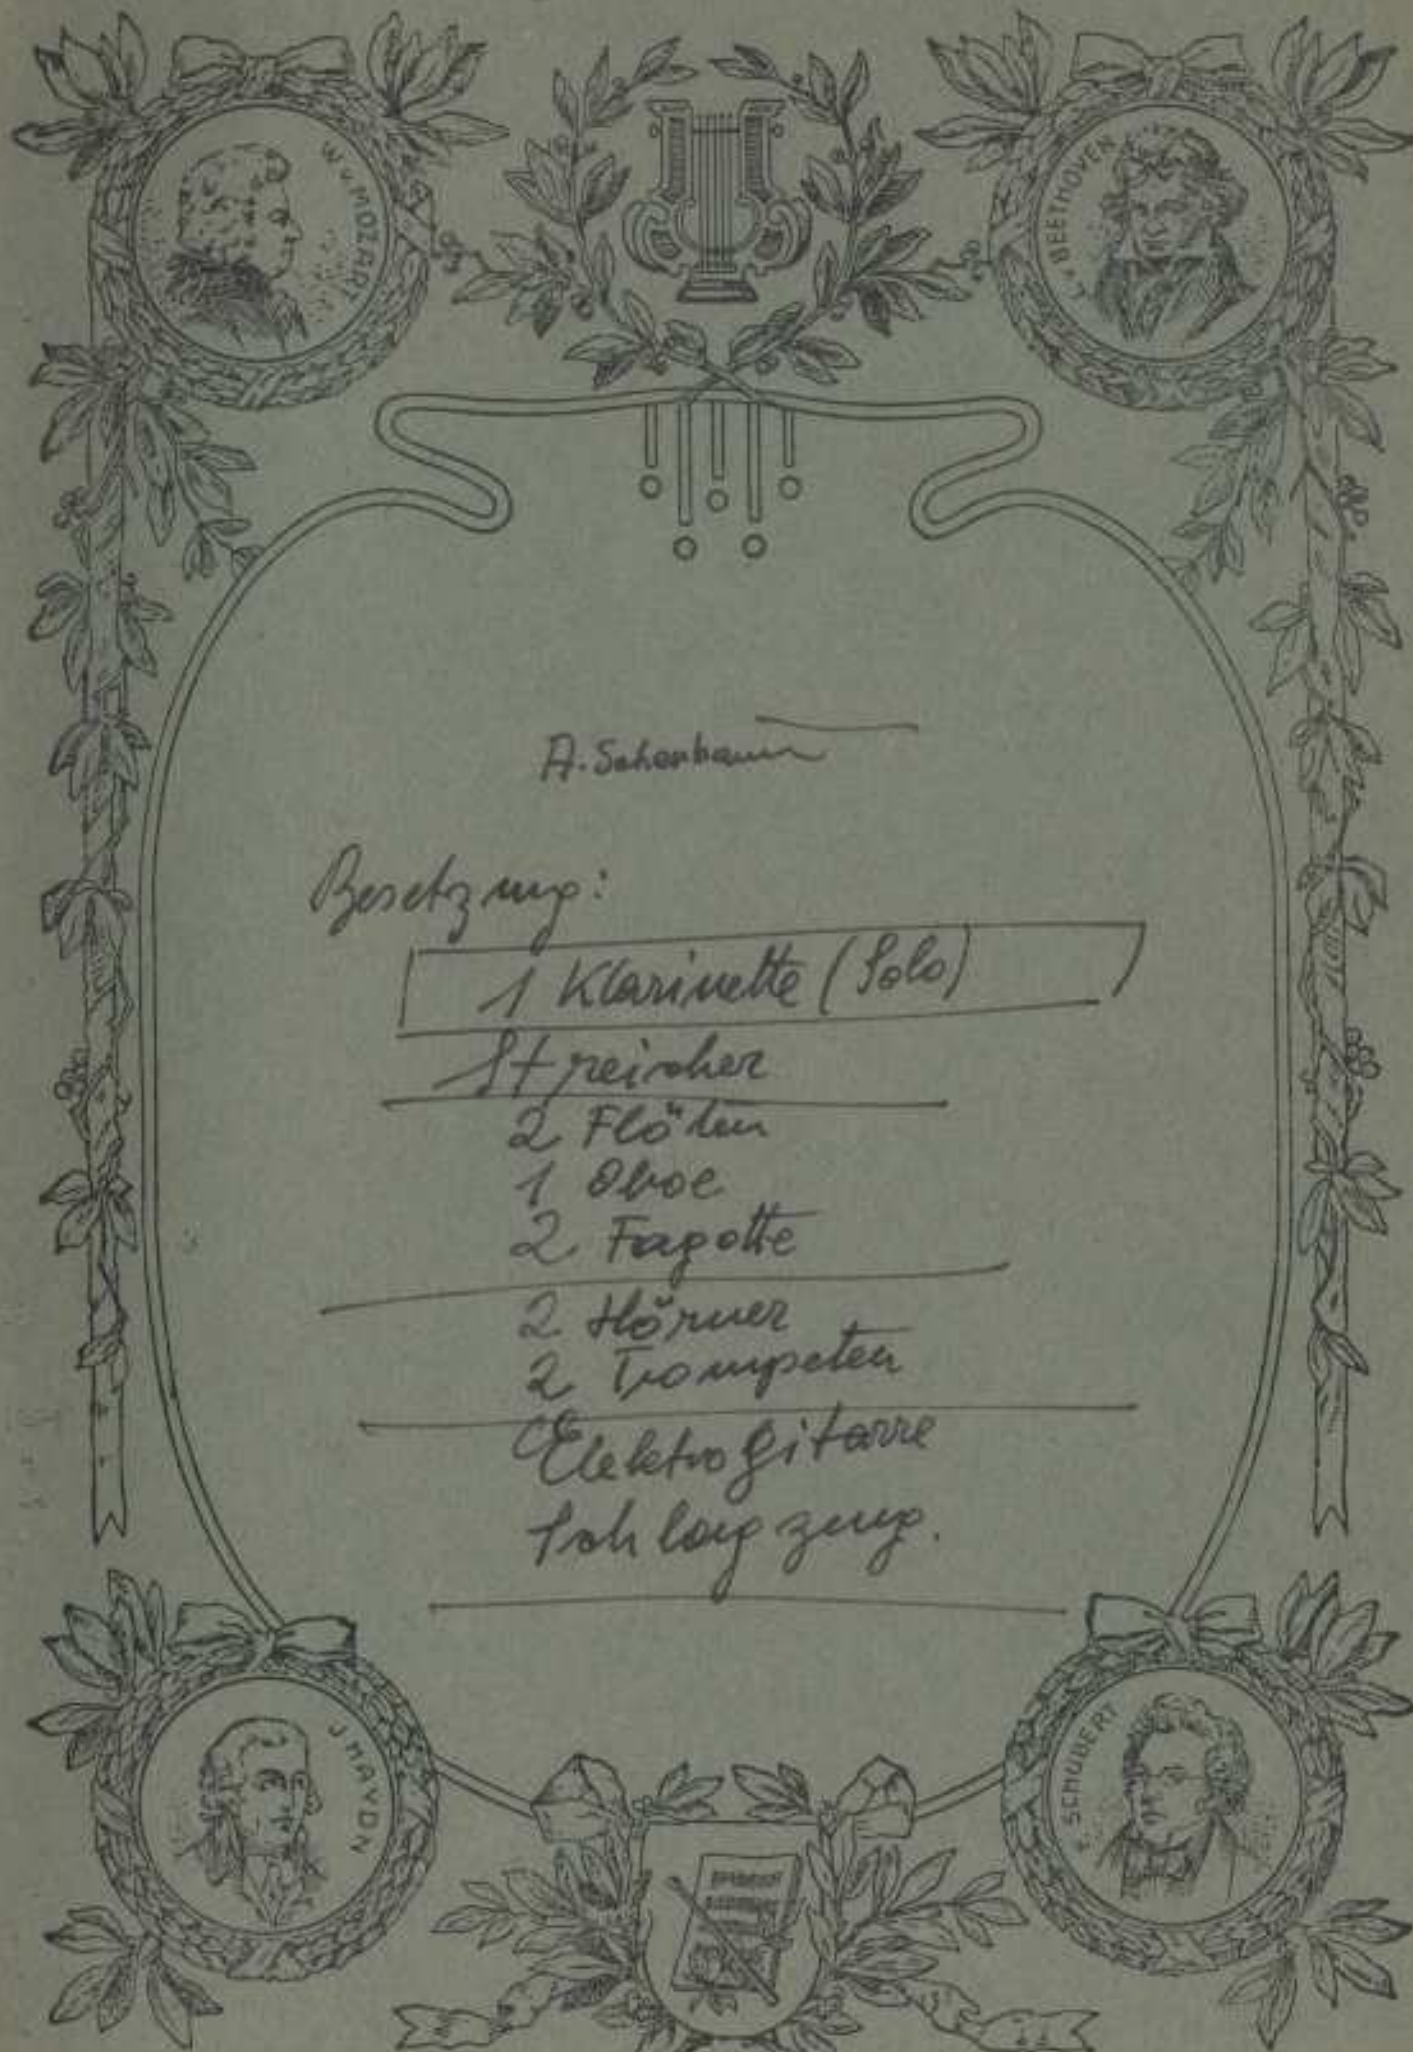 W. v. MOZART
L. v. BEETHOVEN
A.
Besetzung:
1 Klarinette (Solo)
Streicher
2 Flöten
1 Oboe
2 Fagotte
2 Hörner
2 Trompeten
Elektrogitarre
Schlagzeug.
J HAYDN
F SCHUBERT